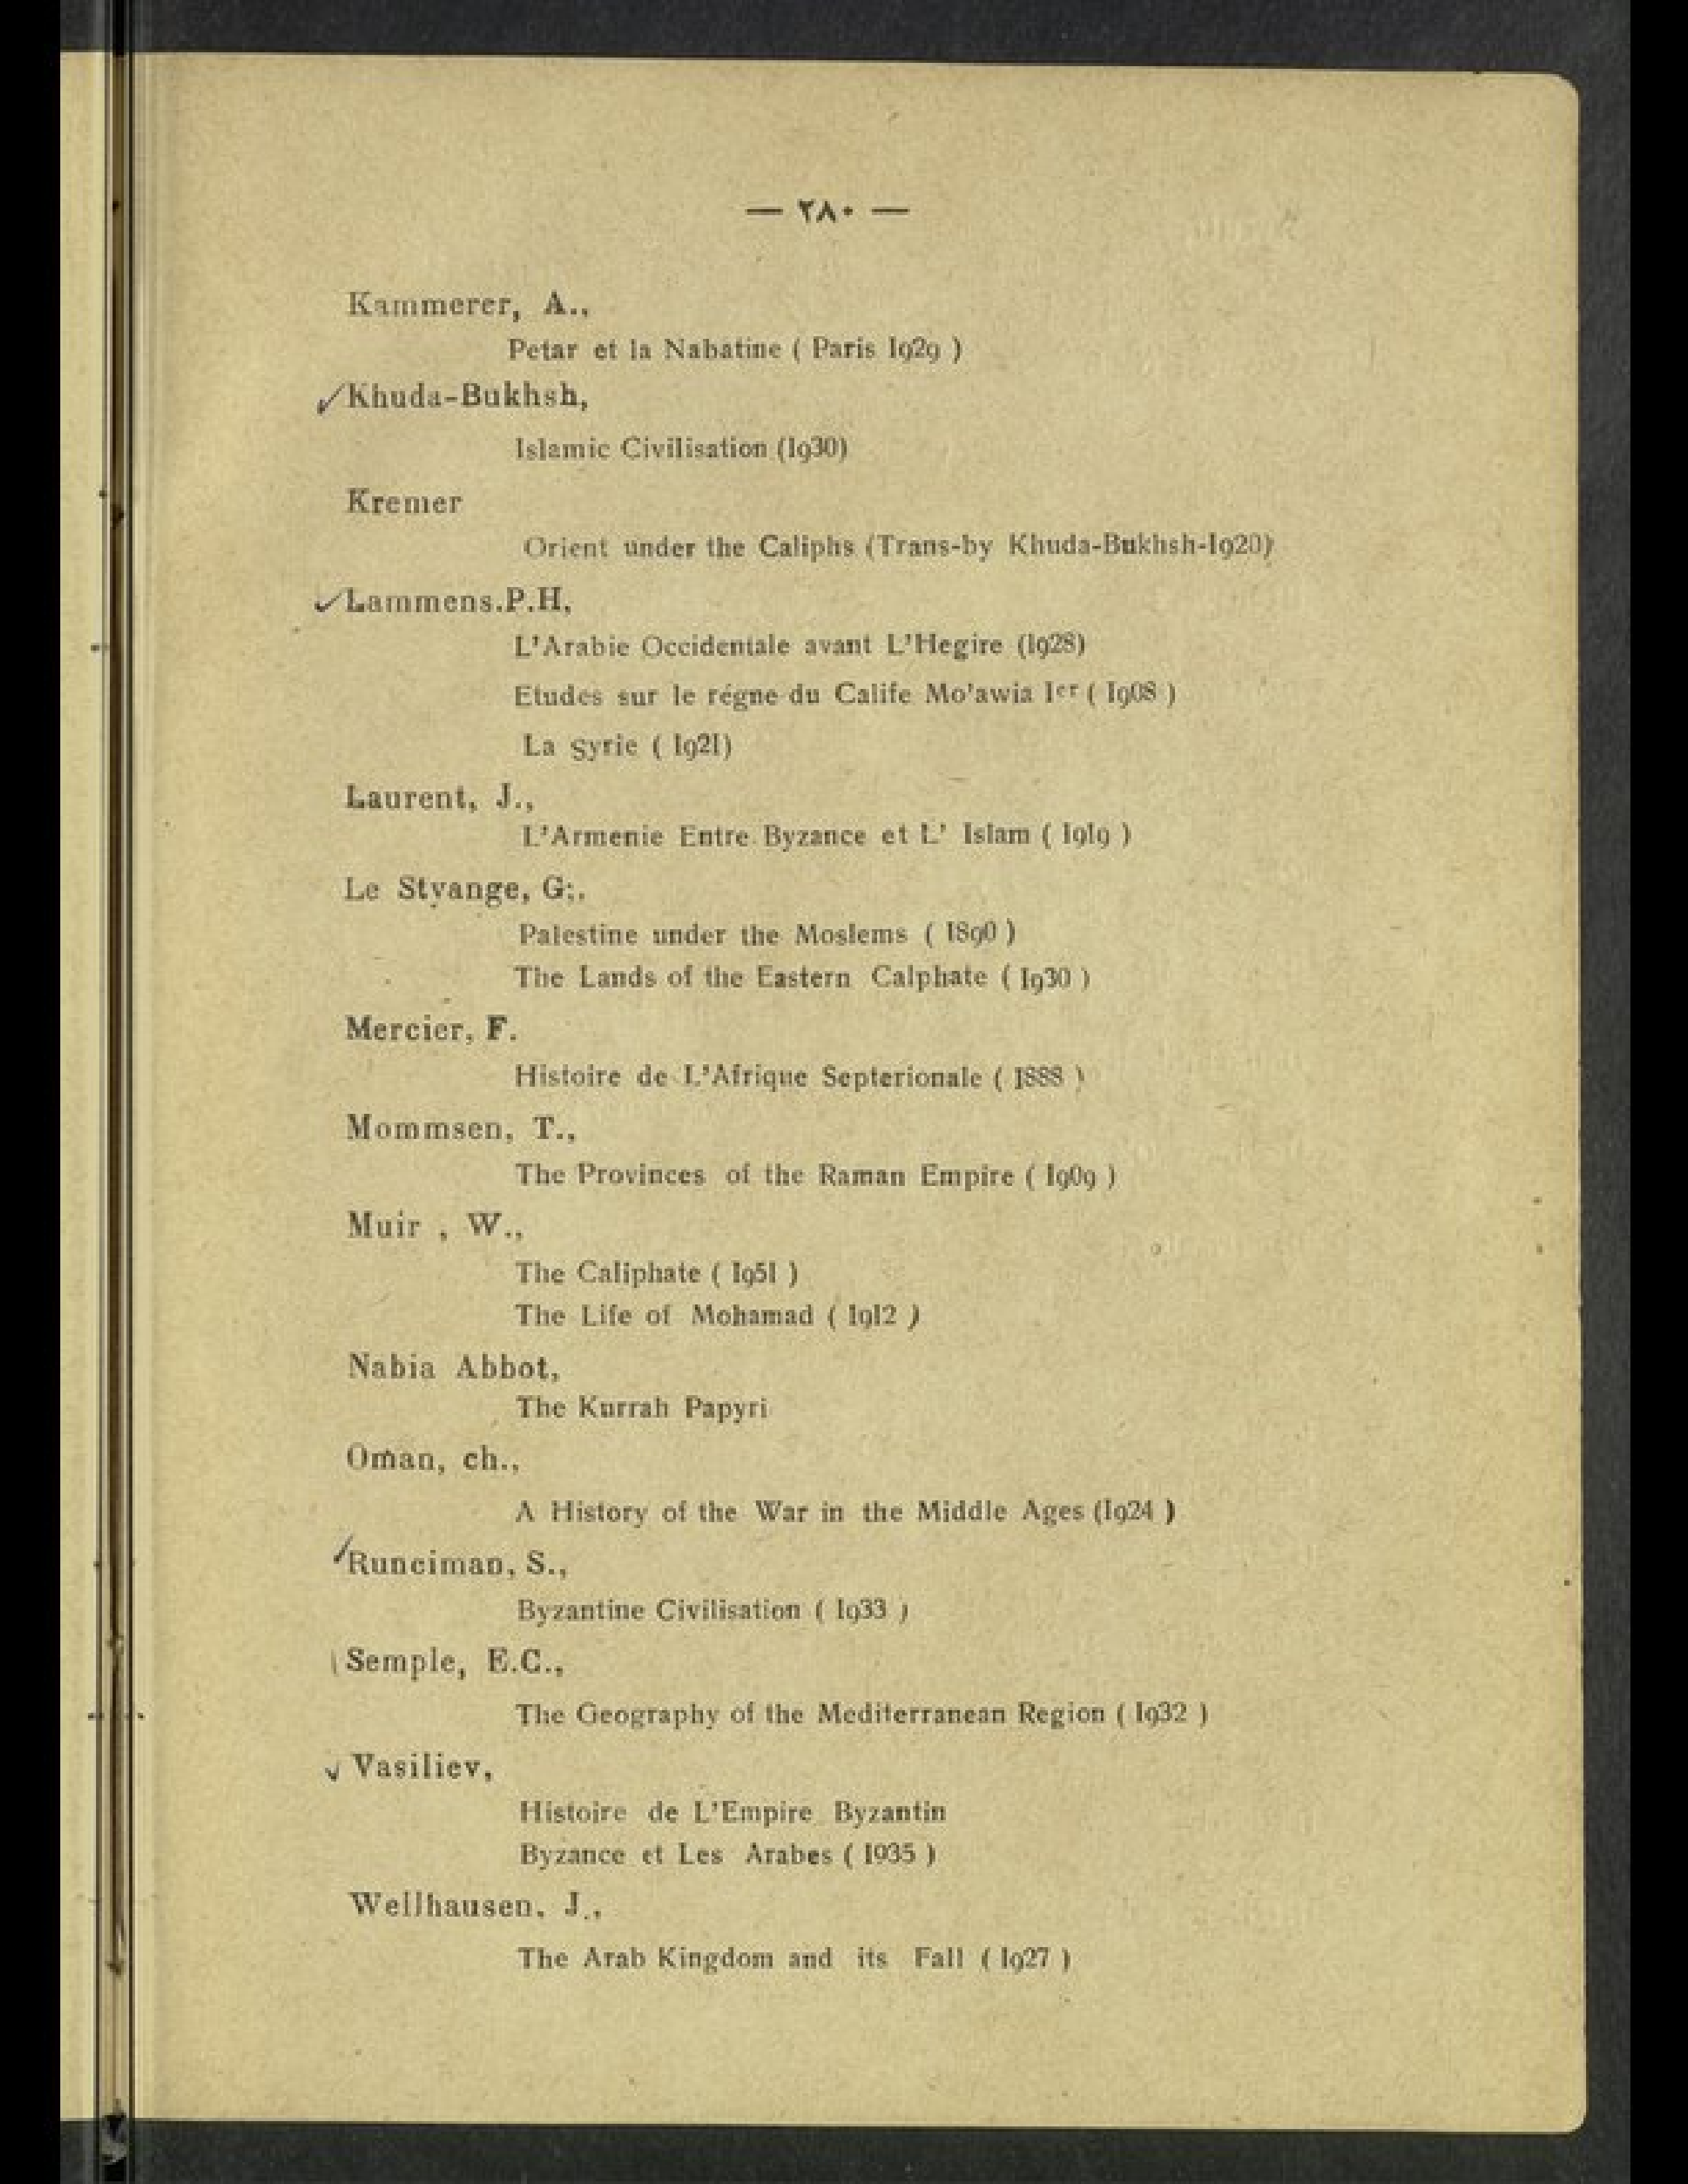 — ٢٨٠ —
Kammerer, A.,
Petar et la Nabatine ( Paris 1929 )
✓Khuda-Bukhsh,
Islamic Civilisation (1930)
Kremer
Orient under the Caliphs (Trans-by Khuda-Bukhsh-1920)
✓Lammens.P.H,
L'Arabie Occidentale avant L'Hegire (1928)
Etudes sur le régne du Calife Mo'awia Ier ( 1908 )
La Syrie ( 1921)
Laurent, J.,
L'Armenie Entre Byzance et L' Islam ( 1919 )
Le Styange, G;.
Palestine under the Moslems ( 1890 )
The Lands of the Eastern Calphate ( 1930 )
Mercier, F.
Histoire de L'Afrique Septerionale ( 1888 )
Mommsen, T.,
The Provinces of the Raman Empire ( 1909 )
Muir , W.,
The Caliphate ( 1951 )
The Life of Mohamad ( 1912 )
Nabia Abbot,
The Kurrah Papyri
Oman, ch.,
A History of the War in the Middle Ages (1924 )
✓Runciman, S.,
Byzantine Civilisation ( 1933 )
Semple, E.C.,
The Geography of the Mediterranean Region ( 1932 )
✓ Vasiliev,
Histoire de L'Empire Byzantin
Byzance et Les Arabes ( 1935 )
Wellhausen, J.,
The Arab Kingdom and its Fall ( 1927 )